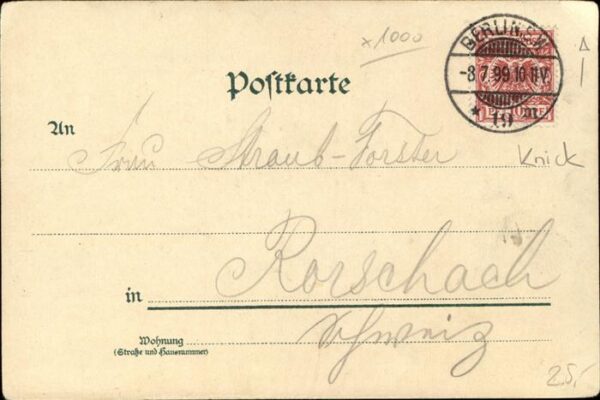 x 1000
BERLIN S.W.
-8 7 99 10 11 V
* 19 m
Postkarte
An
Frau Straub-Forster
Knick
in
Rorschach
Schweiz
Wohnung
(Straße und Hausnummer)
25,-